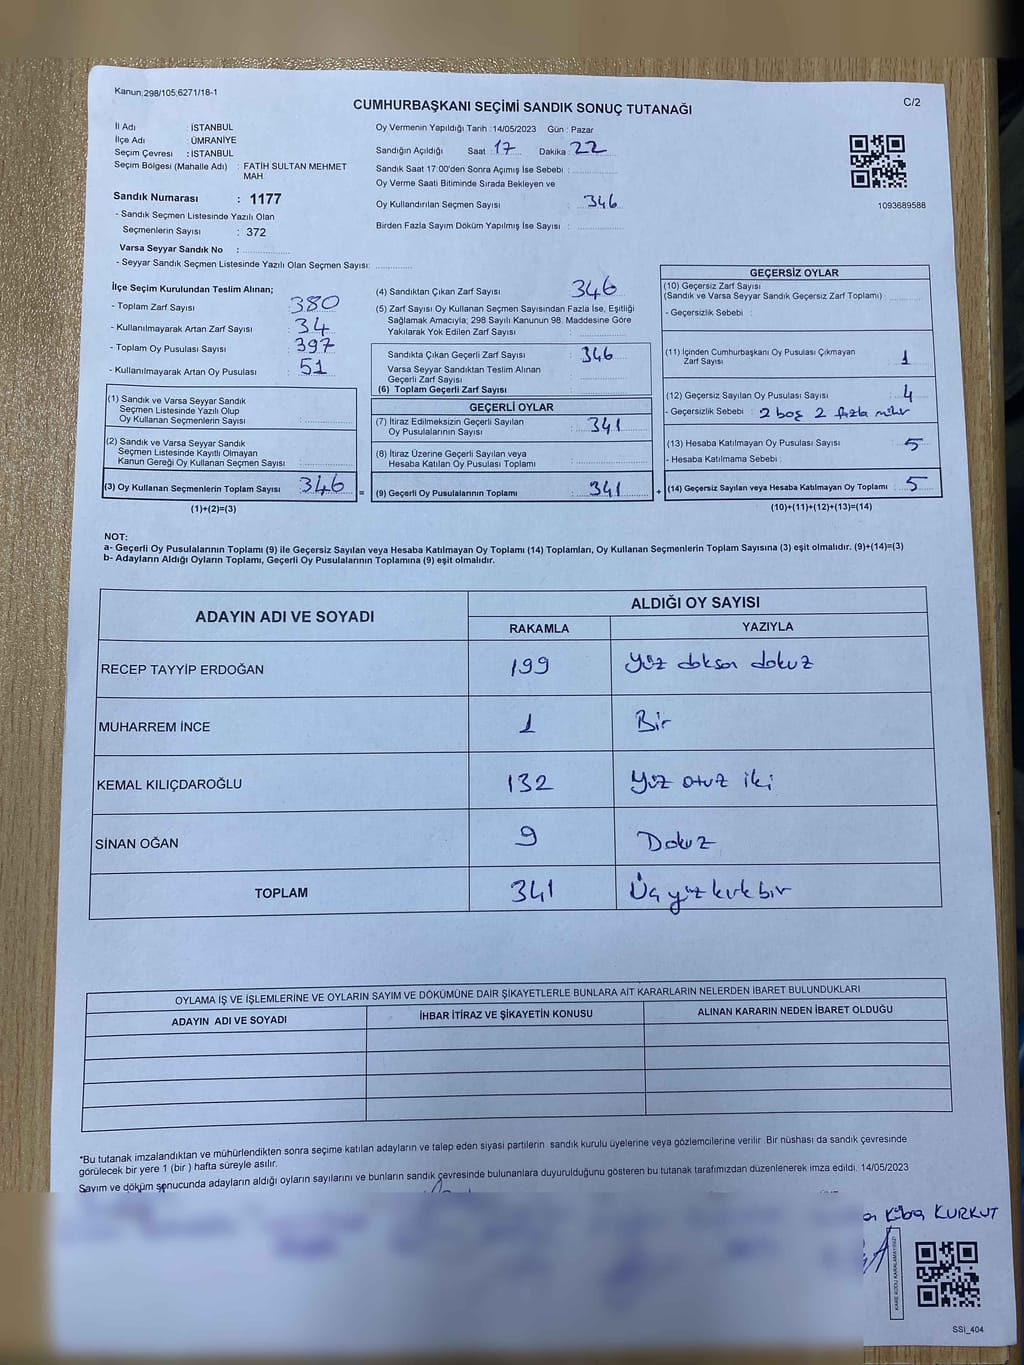 Kanun;298/105,6271/18-1
CUMHURBAŞKANI SEÇİMİ SANDIK SONUÇ TUTANAĞI
C/2
İl Adı : İSTANBUL
İlçe Adı : ÜMRANİYE
Seçim Çevresi : İSTANBUL
Seçim Bölgesi (Mahalle Adı) : FATİH SULTAN MEHMET
MAH.
Sandık Numarası : 1177
- Sandık Seçmen Listesinde Yazılı Olan
Seçmenlerin Sayısı : 372
Varsa Seyyar Sandık No :
- Seyyar Sandık Seçmen Listesinde Yazılı Olan Seçmen Sayısı:
Oy Vermenin Yapıldığı Tarih : 14/05/2023 Gün : Pazar
Sandığın Açıldığı Saat : 17 Dakika : 22
Sandık Saat 17:00'den Sonra Açımış İse Sebebi :
Oy Verme Saati Bitiminde Sırada Bekleyen ve
Oy Kullandırılan Seçmen Sayısı : 346
Birden Fazla Sayım Döküm Yapılmış İse Sayısı :
1093689588
İlçe Seçim Kurulundan Teslim Alınan;
- Toplam Zarf Sayısı : 380
- Kullanılmayarak Artan Zarf Sayısı : 34
- Toplam Oy Pusulası Sayısı : 397
- Kullanılmayarak Artan Oy Pusulası : 51
(1) Sandık ve Varsa Seyyar Sandık
Seçmen Listesinde Yazılı Olup
Oy Kullanan Seçmenlerin Sayısı :
(2) Sandık ve Varsa Seyyar Sandık
Seçmen Listesinde Kayıtlı Olmayan
Kanun Gereği Oy Kullanan Seçmen Sayısı :
(3) Oy Kullanan Seçmenlerin Toplam Sayısı : 346 =
(1)+(2)=(3)
(4) Sandıktan Çıkan Zarf Sayısı : 346
(5) Zarf Sayısı Oy Kullanan Seçmen Sayısından Fazla İse, Eşitliği
Sağlamak Amacıyla; 298 Sayılı Kanunun 98. Maddesine Göre
Yakılarak Yok Edilen Zarf Sayısı :
Sandıkta Çıkan Geçerli Zarf Sayısı : 346
Varsa Seyyar Sandıktan Teslim Alınan
Geçerli Zarf Sayısı :
(6) Toplam Geçerli Zarf Sayısı :
GEÇERLİ OYLAR
(7) İtiraz Edilmeksizin Geçerli Sayılan
Oy Pusulalarının Sayısı : 341
(8) İtiraz Üzerine Geçerli Sayılan veya
Hesaba Katılan Oy Pusulası Toplamı :
(9) Geçerli Oy Pusulalarının Toplamı : 341 +
GEÇERSİZ OYLAR
(10) Geçersiz Zarf Sayısı
(Sandık ve Varsa Seyyar Sandık Geçersiz Zarf Toplamı) :
- Geçersizlik Sebebi :
(11) İçinden Cumhurbaşkanı Oy Pusulası Çıkmayan
Zarf Sayısı : 1
(12) Geçersiz Sayılan Oy Pusulası Sayısı : 4
- Geçersizlik Sebebi : 2 boş 2 fazla mühr
(13) Hesaba Katılmayan Oy Pusulası Sayısı : 5
- Hesaba Katılmama Sebebi :
(14) Geçersiz Sayılan veya Hesaba Katılmayan Oy Toplamı : 5
(10)+(11)+(12)+(13)=(14)
NOT:
a- Geçerli Oy Pusulalarının Toplamı (9) ile Geçersiz Sayılan veya Hesaba Katılmayan Oy Toplamı (14) Toplamları, Oy Kullanan Seçmenlerin Toplam Sayısına (3) eşit olmalıdır. (9)+(14)=(3)
b- Adayların Aldığı Oyların Toplamı, Geçerli Oy Pusulalarının Toplamına (9) eşit olmalıdır.
ADAYIN ADI VE SOYADI
ALDIĞI OY SAYISI
RAKAMLA YAZIYLA
RECEP TAYYİP ERDOĞAN 199 Yüz doksan dokuz
MUHARREM İNCE 1 Bir
KEMAL KILIÇDAROĞLU 132 Yüz otuz iki
SİNAN OĞAN 9 Dokuz
TOPLAM 341 Üç yüz kırk bir
OYLAMA İŞ VE İŞLEMLERİNE VE OYLARIN SAYIM VE DÖKÜMÜNE DAİR ŞİKAYETLERLE BUNLARA AİT KARARLARIN NELERDEN İBARET BULUNDUKLARI
ADAYIN ADI VE SOYADI İHBAR İTİRAZ VE ŞİKAYETİN KONUSU ALINAN KARARIN NEDEN İBARET OLDUĞU
*Bu tutanak imzalandıktan ve mühürlendikten sonra seçime katılan adayların ve talep eden siyasi partilerin sandık kurulu üyelerine veya gözlemcilerine verilir. Bir nüshası da sandık çevresinde
görülecek bir yere 1 (bir ) hafta süreyle asılır.
Sayım ve döküm sonucunda adayların aldığı oyların sayılarını ve bunların sandık çevresinde bulunanlara duyurulduğunu gösteren bu tutanak tarafımızdan düzenlenerek imza edildi. 14/05/2023
Kübra KURKUT
KARE KODU KARALAMAYINIZ!
SSİ_404